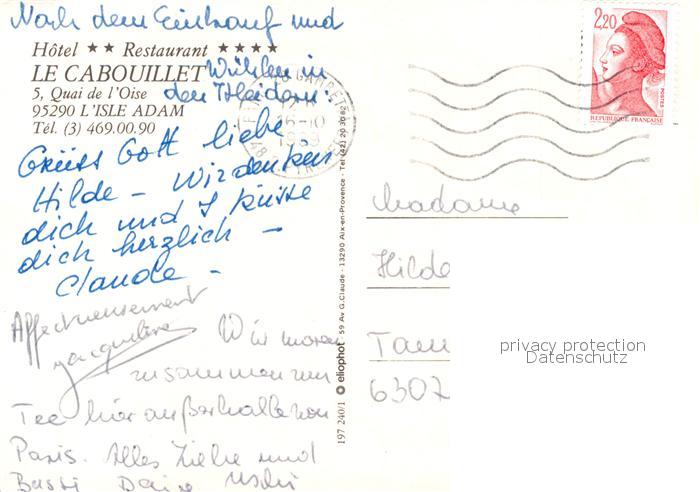 Nach dem Einkauf und
Wühlen in
den Kleidern.
Hôtel ★★ Restaurant ★★★★
LE CABOUILLET
5, Quai de l'Oise
95290 L'ISLE ADAM
Tél. (3) 469.00.90
Grüss Gott liebe
Hilde – Wir denken
dich und I küsse
dich herzlich –
Claude –
Affectueusement
Jacqueline
Wir waren
zusammen zum
Tee hier außerhalb von
Paris. Alles Liebe und
Bussi Deine Uschi
197 240/1 eliophot - 59 Av G.Claude - 13290 Aix-en-Provence - Tél (42)
16-10
2,20
POSTES
REPUBLIQUE FRANÇAISE
Madame
Hilde
6307
privacy protection
Datenschutz